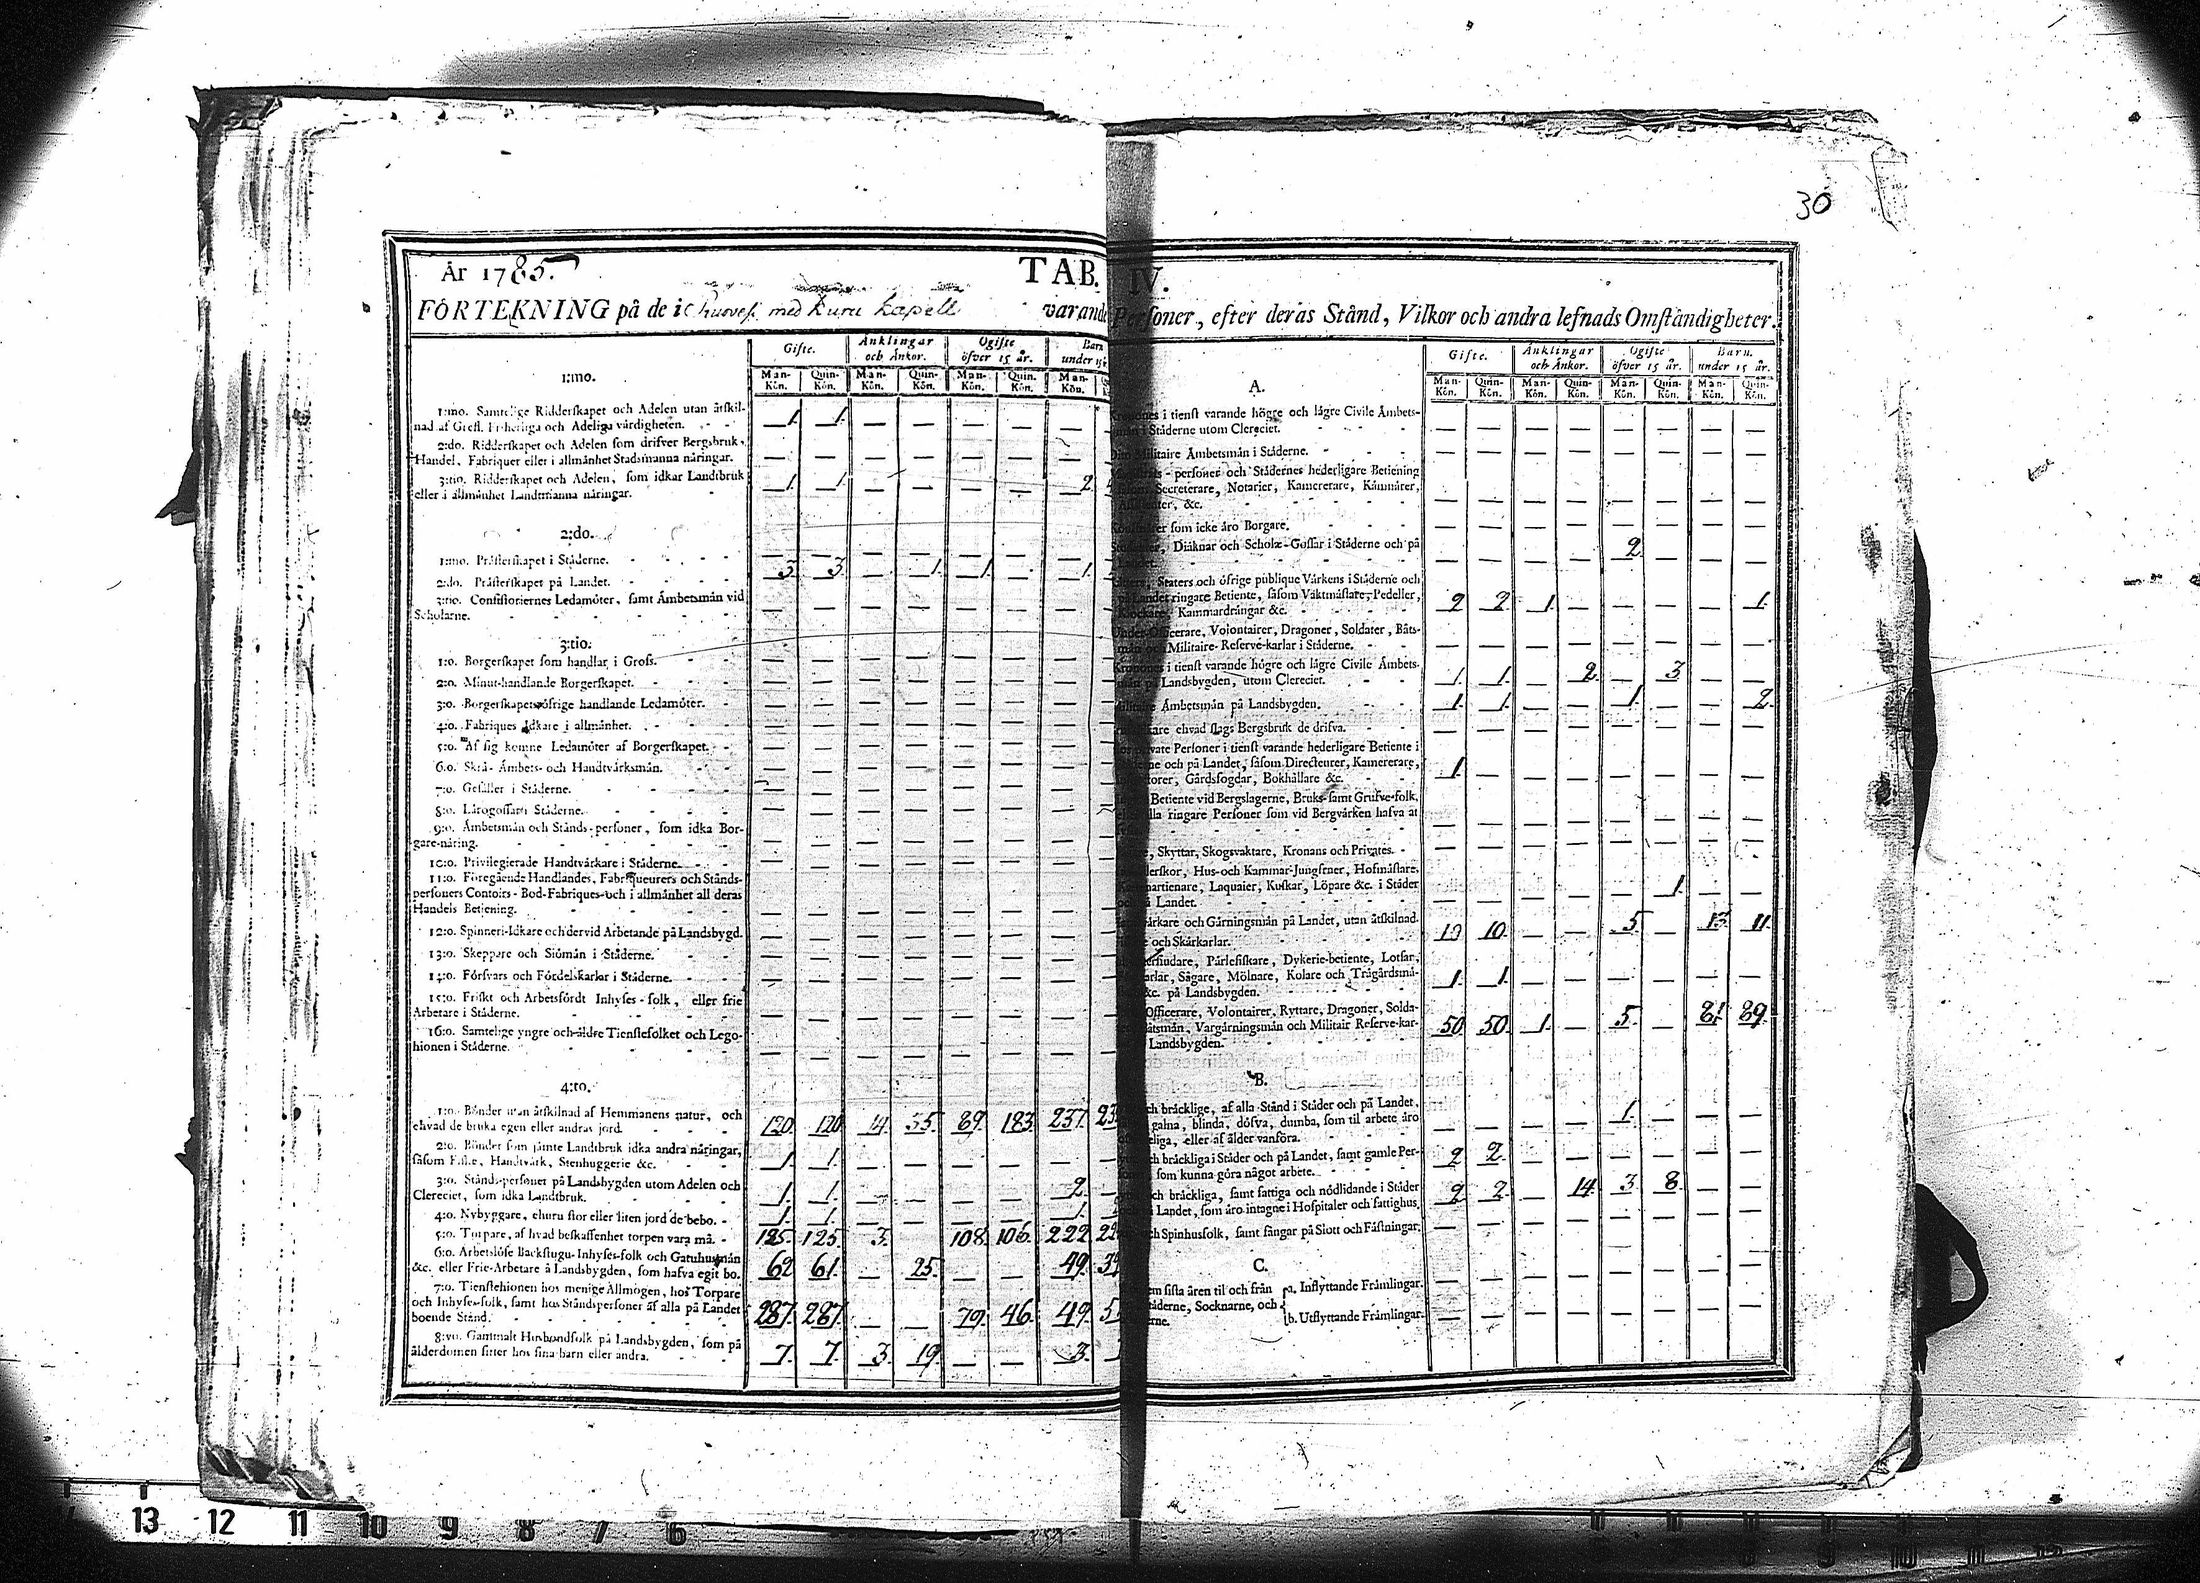 30
År 1785.
TAB. IV.
FÖRTEKNING på de i med Kuru Kapell varande Personer, efter deras Stånd, Vilkor och andra lefnads Omständigheter.
Gifte. Änklingar och Änkor. Ogifte öfver 15 år. Barn under 15
Man-Kön. Quin-Kön. Man-Kön. Quin-Kön. Man-Kön. Quin-Kön. Man-Kön.
1:mo.
1:mo. Samtelige Ridderskapet och Adelen utan åtskil-
nad af Grefl. Friherrliga och Adeliga värdigheten. 1. 1. — — — — —
2:do. Ridderskapet och Adelen som drifver Bergsbruk,
Handel, Fabriquer eller i allmänhet Stadsmanna näringar. — — — — — — —
3:tio. Ridderskapet och Adelen, som idkar Landtbruk
eller i allmänhet Landtmanna näringar. 1. 1. — — — — 2.
2:do.
1:mo. Prästerskapet i Städerne. — — — — — — —
2:do. Prästerskapet på Landet. 3. 3. 1. 1. 1.
3:tio. Consistoriernes Ledamöter, samt Ämbetsmän vid
Scholarne. — — — — — — —
3:tio.
1:o. Borgerskapet som handlar i Gross. — — — — — — —
2:o. Minut-handlande Borgerskapet. — — — — — — —
3:o. Borgerskapets öfrige handlande Ledamöter. — — — — — — —
4:o. Fabriques Idkare i allmänhet. — — — — — — —
5:o. Af sig komne Ledamöter af Borgerskapet. — — — — — — —
6:o. Skrå- Ämbets- och Handtvärksmän. — — — — — — —
7:o. Gesäller i Städerne. — — — — — — —
8:o. Lärogossar i Städerne. — — — — — — —
9:o. Ämbetsmän och Stånds-personer, som idka Bor-
gare-näring. — — — — — — —
10:o. Privilegierade Handtvärkare i Städerne. — — — — — — —
11:o. Föregående Handlandes, Fabriqueurers och Stånds-
personers Contoirs- Bod-Fabriques-och i allmänhet all deras
Handels Betjening. — — — — — — —
12:o. Spinneri-Idkare och dervid Arbetande på Landsbygd. — — — — — — —
13:o. Skeppare och Siömän i Städerne. — — — — — — —
14:o. Försvars och Fördelskarlar i Städerne. — — — — — — —
15:o. Friskt och Arbetsfördt Inhyses-folk, eller frie
Arbetare i Städerne. — — — — — — —
16:o. Samtelige yngre och äldre Tienstefolket och Lego-
hionen i Städerne. — — — — — — —
4:to.
1:o. Bönder utan åtskilnad af Hemmanens natur, och
ehvad de bruka egen eller andras jord. 120. 120. 14. 55. 89. 183. 237.
2:o. Bönder som jämte Landtbruk idka andra näringar,
såsom Fiske, Handtvärk, Stenhuggerie &c. 1. 1. — — — — —
3:o. Stånds-personer på Landsbygden utom Adelen och
Clereciet, som idka Landtbruk. 1. 1. — — — — 2.
4:o. Nybyggare, ehuru stor eller liten jord de bebo. 1. 1. — — — — 1.
5:o. Torpare, af hvad beskaffenhet torpen vara må. 125. 125. 3. 108. 106. 222.
6:o. Arbetslöse Backstugu-Inhyses-folk och Gatuhusmän
&c. eller Frie-Arbetare å Landsbygden, som hafva egit bo. 62 61. — 25. — — 49.
7:o. Tienstehionen hos menige Allmogen, hos Torpare
och Inhyses-folk, samt hos Ståndspersoner af alla på Landet
boende Stånd. 287. 287. — — 79. 46. 49.
8:vo. Gammalt Husbondfolk på Landsbygden, som på
ålderdomen sitter hos sina barn eller andra. 7. 7. 3. 19. — — 3.
Gifte. Änklingar och Änkor. Ogifte öfver 15 år. Barn. under 15 år.
Man-Kön. Quin-Kön. Man-Kön. Quin-Kön. Man-Kön. Quin-Kön. Man-Kön. Quin-Kön.
A.
i tienst varande högre och lägre Civile Ämbets-
i Städerne utom Clereciet. — — — — — — — —
Militaire Ämbetsmän i Städerne. — — — — — — — —
personer och Städernes hederligare Betiening
Secreterare, Notarier, Kamererare, Kämnärer,
&c. — — — — — — — —
som icke äro Borgare. — — — — — — — —
Diäknar och Scholæ-Gossar i Städerne och på
Landet. — — — — 2. — — —
Staters och öfrige publique Värkens i Städerne och
på Landet ringare Betiente, såsom Vaktmästare, Pedeller,
Klockare, Kammardrängar &c. 2 2 1. — — — — 1.
Under-Officerare, Volontairer, Dragoner, Soldater, Båts-
män och Militaire-Reserve-karlar i Städerne. — — — — — — — —
i tienst varande högre och lägre Civile Ämbets-
på Landsbygden, utom Clereciet. 1. 1. — 2. — 3. — —
Ämbetsmän på Landsbygden. 1. 1. — — 1. — — 2.
ehvad slags Bergsbruk de drifva. — — — — — — — —
Personer i tienst varande hederligare Betiente i
och på Landet, såsom Directeurer, Kamererare,
Gårdsfogdar, Bokhållare &c. 1. — — — — — — —
Betiente vid Bergslagerne, Bruks-samt Grufve-folk,
ringare Personer som vid Bergvärken hafva at
— — — — — — — —
Skyttar, Skogsvaktare, Kronans och Privates. — — — — — — — —
Hus-och Kammar-Jungfruer, Hofmästare,
Laquaier, Kuskar, Löpare &c. i Städer
Landet. — — — — — 1. — —
och Gärningsmän på Landet, utan åtskilnad.
och Skärkarlar. 10 10. — — 5. — 13. 11.
Pärlefiskare, Dykerie-betiente, Lotsar,
Sågare, Mölnare, Kolare och Trägårdsmä-
&c. på Landsbygden. 1. 1. — — — — — —
Officerare, Volontairer, Ryttare, Dragoner, Solda-
Båtsmän, Vargärningsmän och Militair Reserve-kar-
Landsbygden. 50. 50. 1. — 5. — 81. 89.
B.
bräcklige, af alla Stånd i Städer och på Landet,
galna, blinda, döfva, dumba, som til arbete äro
eller af ålder vanföra. — — — — 1. — — —
bräckliga i Städer och på Landet, samt gamle Per-
som kunna göra något arbete. 2 2. — — — — — —
bräckliga, samt fattiga och nödlidande i Städer
Landet, som äro intagne i Hospitaler och fattighus. 2 2. — 14. 3. 8. — —
Spinhusfolk, samt fångar på Slott och Fästningar. — — — — — — — —
C.
sista åren til och från
Socknarne, och
a. Inflyttande Främlingar. — — — — — — — —
b. Utflyttande Främlingar. — — — — — — — —
13 12 11 10 9 8 7 6